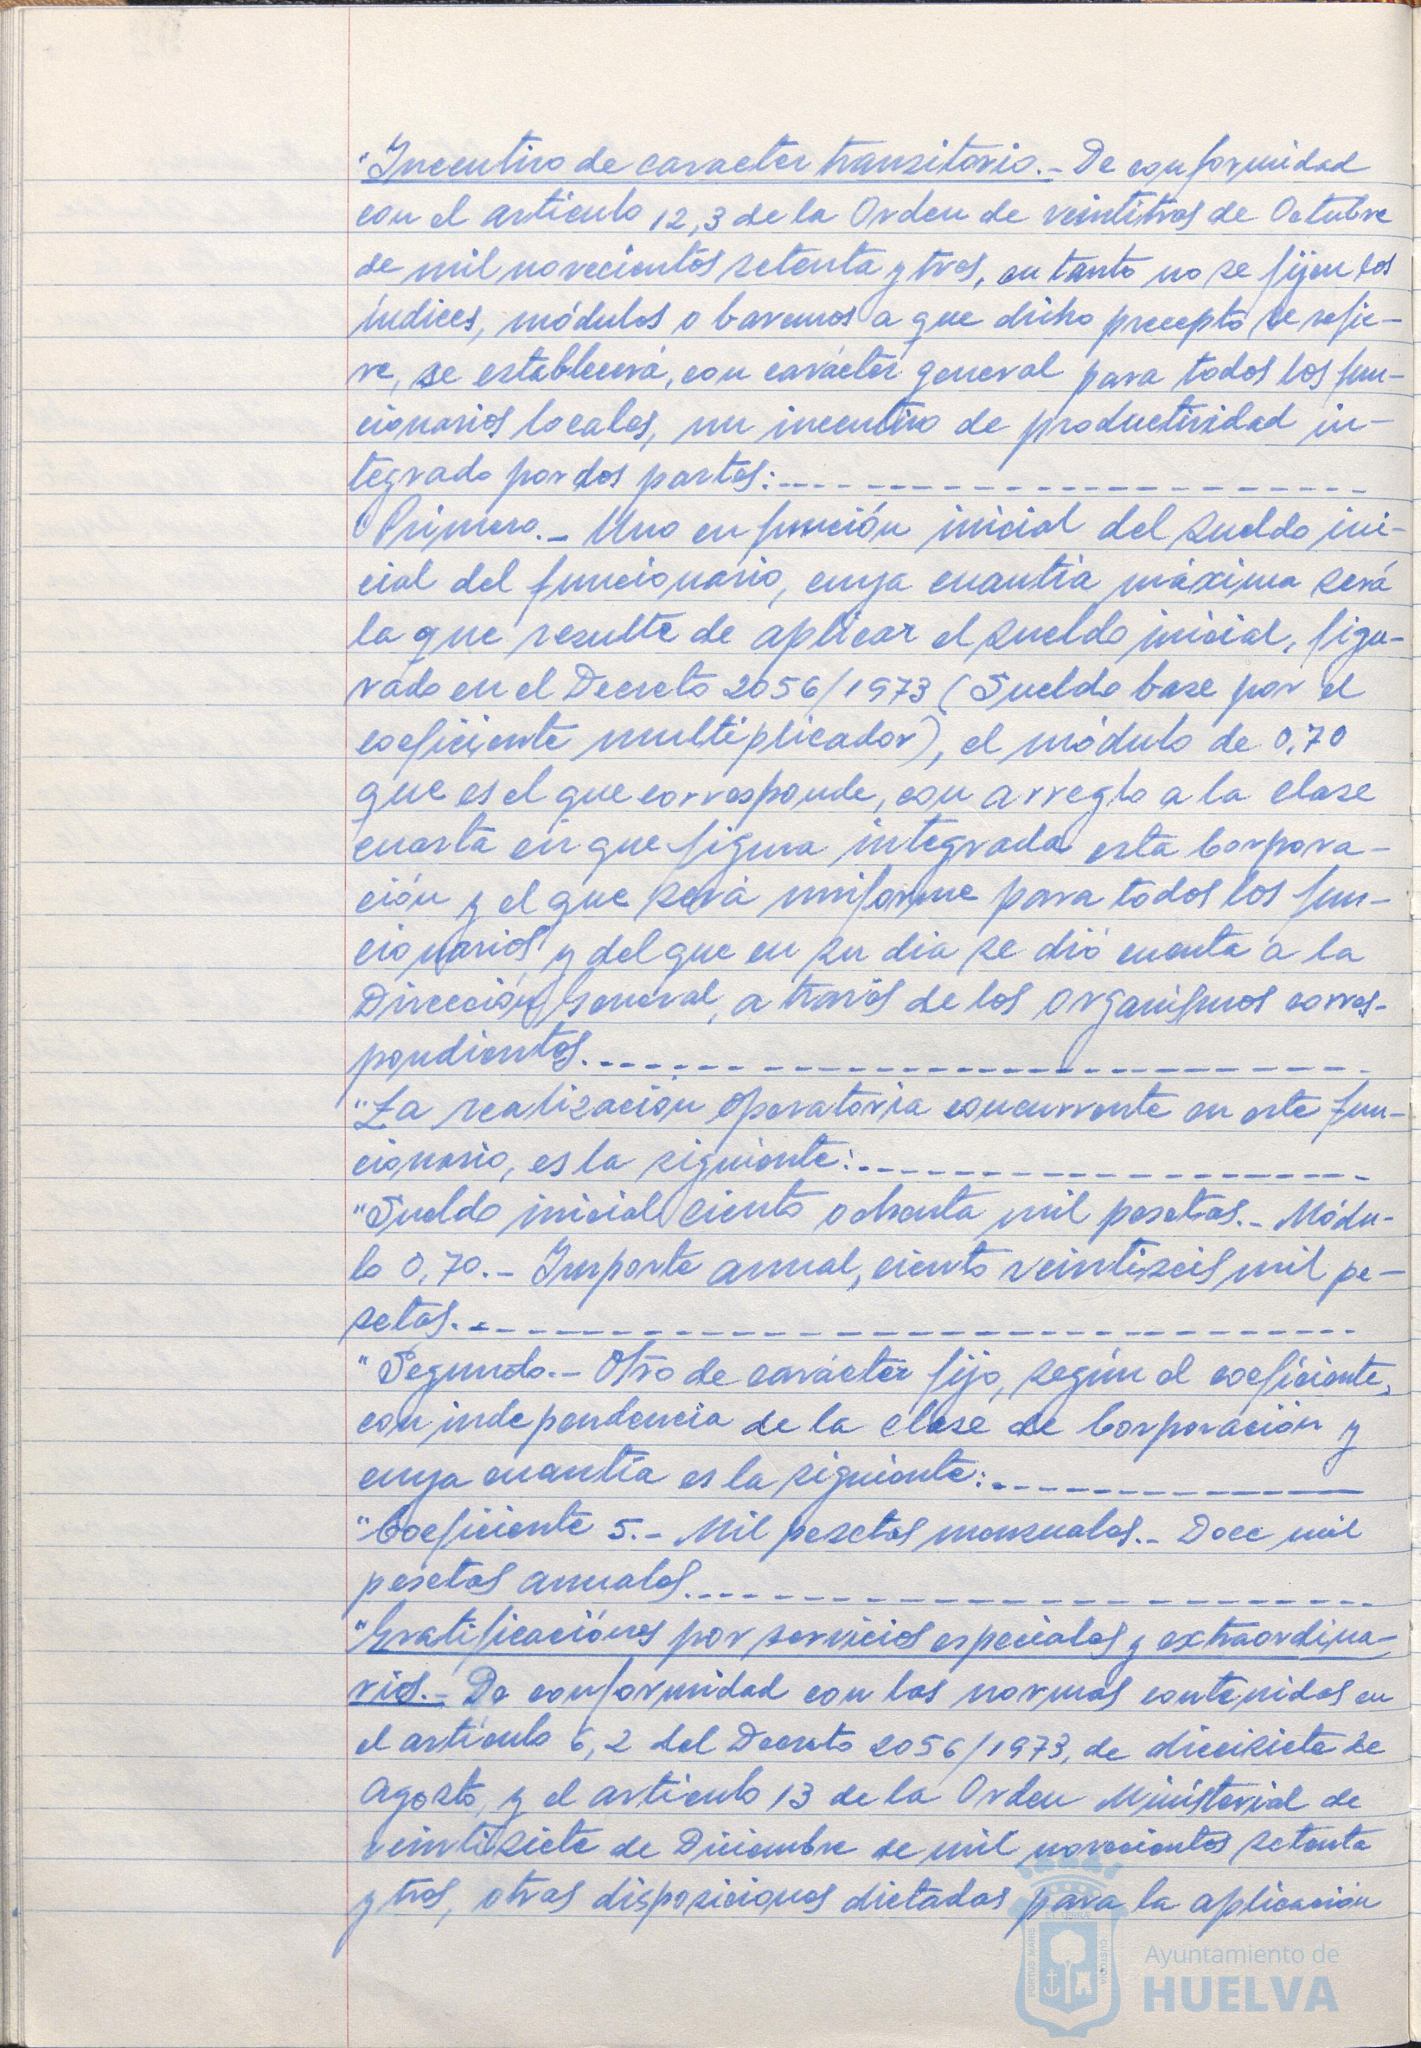 "Incentivo de caracter transitorio.- De conformidad
con el articulo 12,3 de la Orden de veintitres de Octubre
de mil novecientos setenta y tres, en tanto no se fijen los
índices, módulos o baremos a que dicho precepto se refie-
re, se establecerá, con carácter general para todos los fun-
cionarios locales, un incentivo de productividad in-
tegrado por dos partes:
"Primero.- Uno en función inicial del sueldo ini-
cial del funcionario, cuya cuantía máxima será
la que resulte de aplicar el sueldo inicial, figu-
rado en el Decreto 2056/1973 (Sueldo base por el
coeficiente multiplicador), el módulo de 0,70
que es el que corresponde, con arreglo a la clase
cuarta en que figura integrada esta Corpora-
ción y el que será uniforme para todos los fun-
cionarios y del que en su dia se dió cuenta a la
Dirección General, a través de los Organismos corres-
pondientes.
"La realización operatoria concurrente en este fun-
cionario, es la siguiente:
"Sueldo inicial ciento ochenta mil pesetas.- Módu-
lo 0,70.- Importe anual, ciento veintiseis mil pe-
setas.
"Segundo.- Otro de carácter fijo, según el coeficiente,
con independencia de la clase de Corporación y
cuya cuantía es la siguiente:
"Coeficiente 5.- Mil pesetas mensuales.- Doce mil
pesetas anuales.
"Gratificaciónes por servicios especiales y extraordina-
rios.- De conformidad con las normas contenidas en
el artículo 6,2 del Decreto 2056/1973, de diecisiete de
Agosto, y el articulo 13 de la Orden Ministerial de
veintisiete de Diciembre de mil novecientos setenta
y tres, otras disposiciones dictadas para la aplicación
PORTUS MARIS
CUSTODIA
Ayuntamiento de
HUELVA